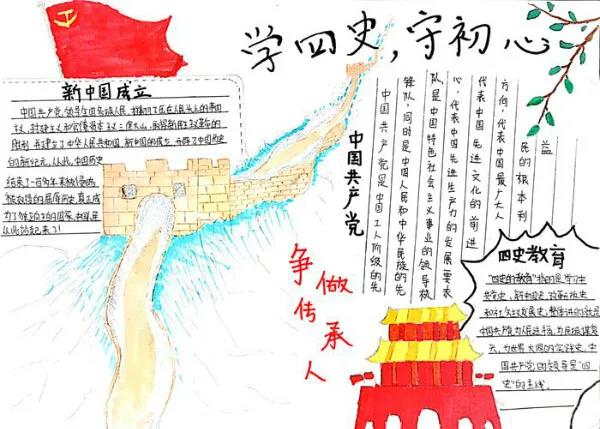 学四史,守初心
新中国成立
中国共产党领导全国各族人民,推翻了压在人民头上的帝国
主义、封建主义和官僚资本主义三座大山,取得新民主主义革命的
胜利,并建立了中华人民共和国,新中国的成立,开辟了中国历史
的新纪元,从此,中国历史
结束了一百多年来被侵略
被奴役的屈辱历史,真正成
为了独立自主的国家,中国人民
从此站起来了!
中国共产党
中国共产党是中国工人阶级的先
锋队,同时是中国人民和中华民族的先
队,是中国特色社会主义事业的领导核
心,代表中国先进生产力的发展要求
代表中国先进文化的前进
方向,代表中国最广大人
民的根本利
益
争做
传承人
四史教育
"四史的教育"指的是学习中
共党史、新中国史、改革开放史
和社会主义发展史,整体讲的就是
中国共产党为人民谋福、为民族谋复
兴、为世界大同的实践史,中
国共产党的领导是"四
史"的主线。